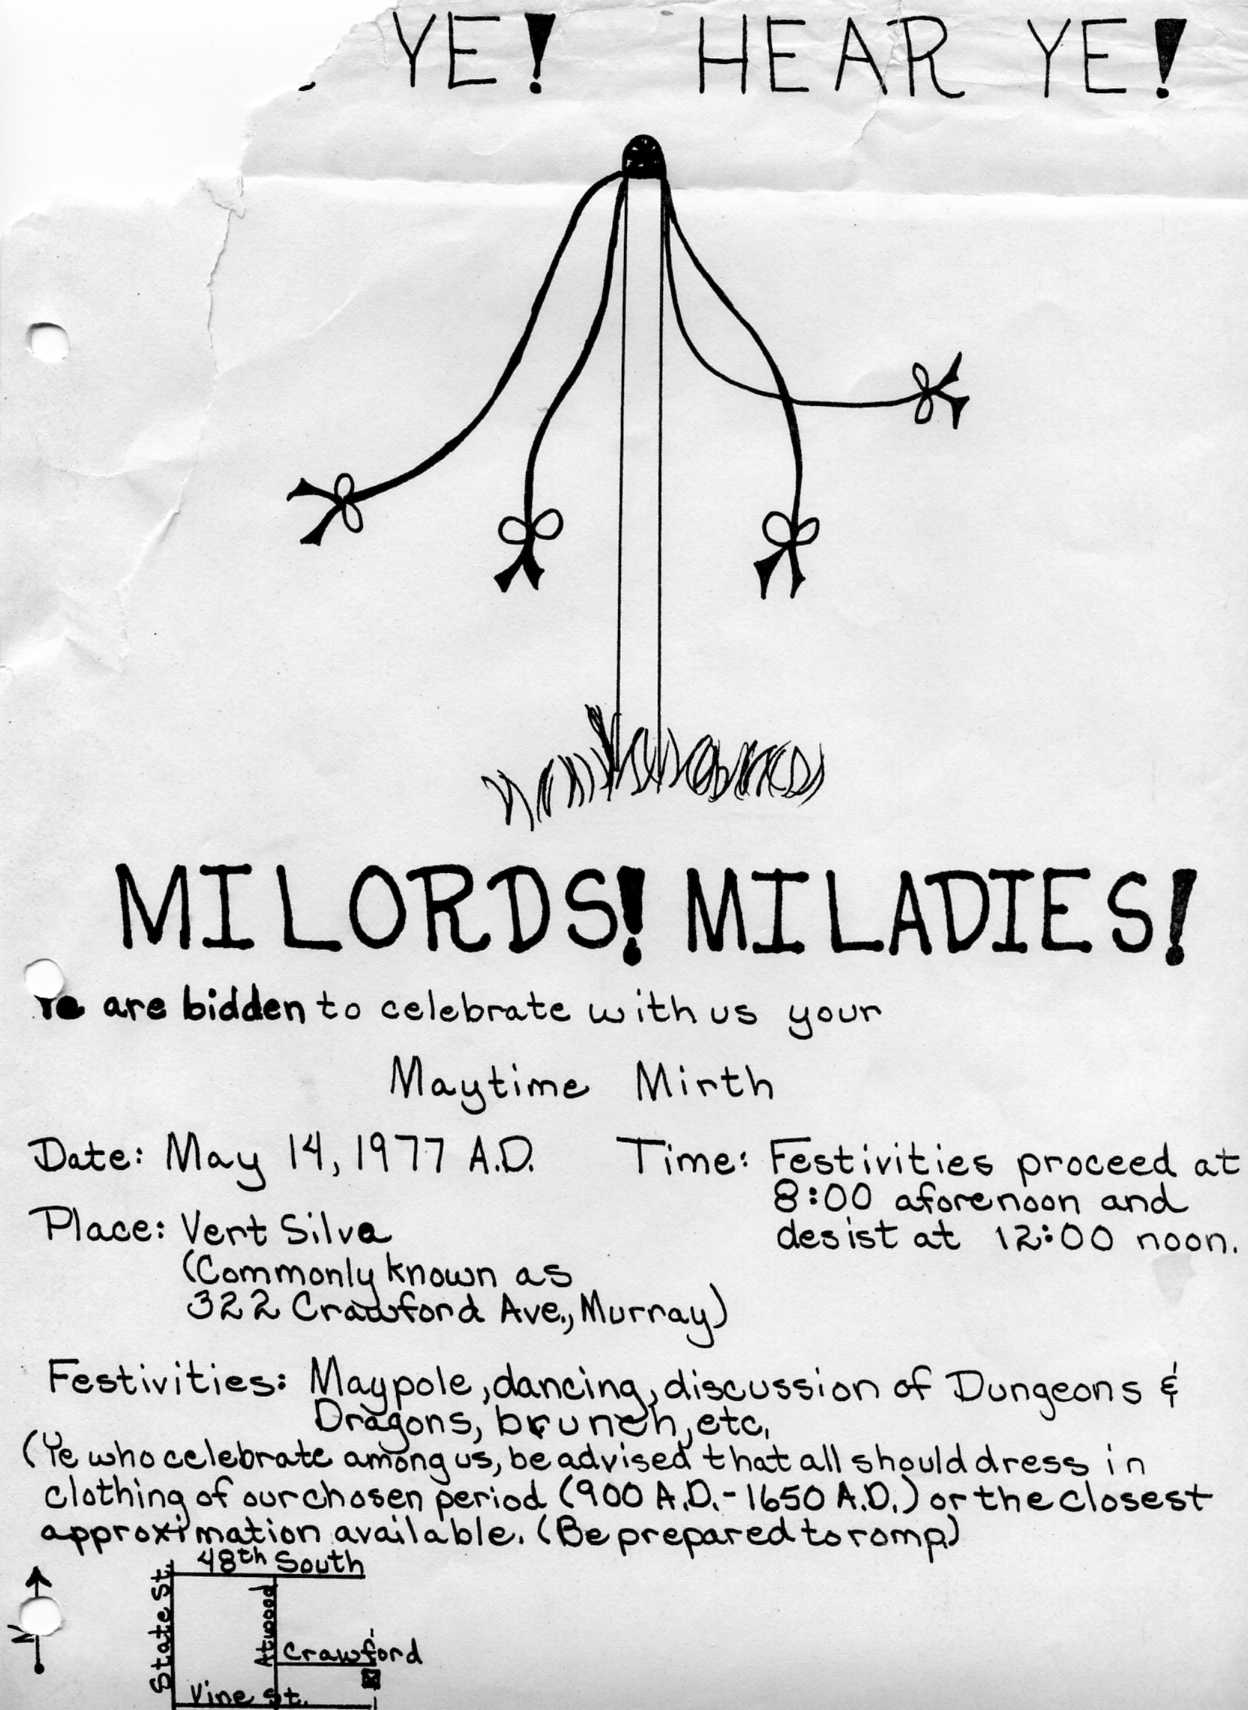 YE! HEAR YE!
MILORDS! MILADIES!
Ye are bidden to celebrate with us your
Maytime Mirth
Date: May 14, 1977 A.D.
Time: Festivities proceed at
8:00 aforenoon and
desist at 12:00 noon.
Place: Vert Silva
(Commonly known as
322 Crawford Ave., Murray)
Festivities: Maypole, dancing, discussion of Dungeons &
Dragons, brunch, etc.
(Ye who celebrate among us, be advised that all should dress in
clothing of our chosen period (900 A.D.-1650 A.D.) or the closest
approximation available. (Be prepared to romp)
48th South
State St.
Atwood
Crawford
Vine St.
N